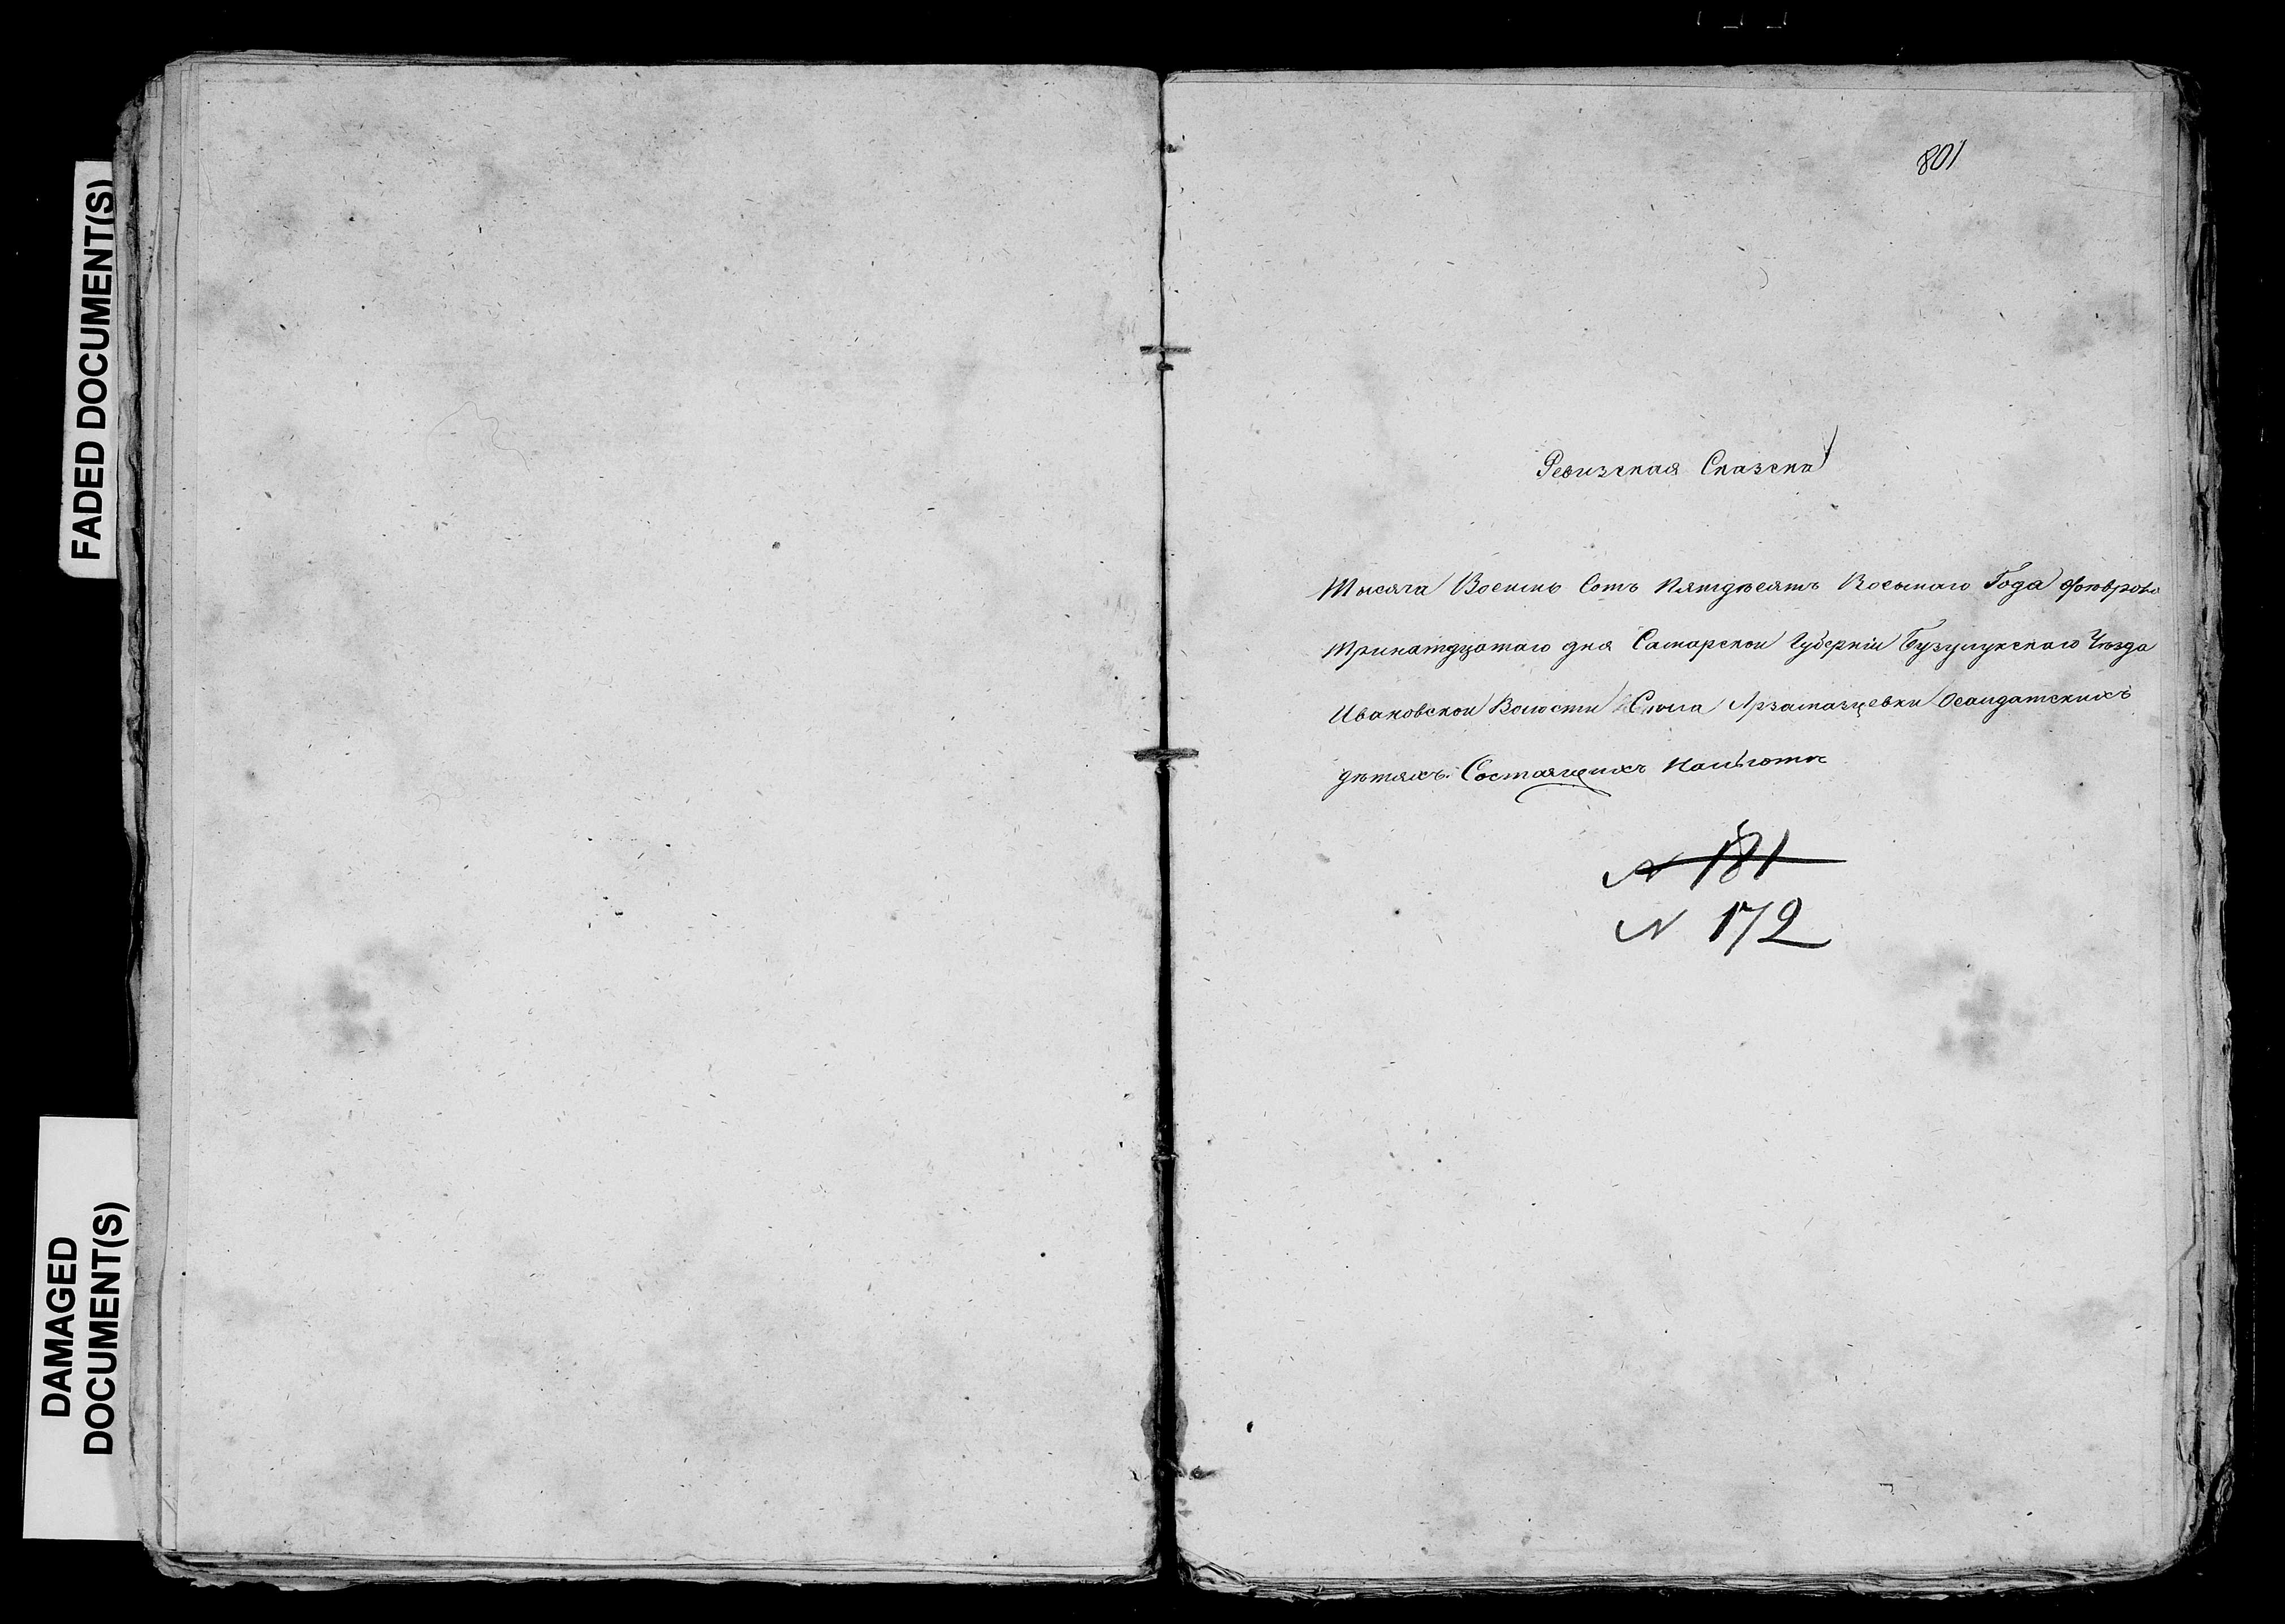 FADED DOCUMENT(S)
DAMAGED
DOCUMENT(S)
801
Ревизская Сказска
Тысяча Восемь Сотъ Пятдѣсятъ Восьмаго Года февраля
Тринатдцатаго дня Самарской Губерніи Бузулукскаго Уѣзда
Ивановской Волости Села Арзамазцевки Осалдатскихъ
дѣтяхъ. Состаящихъ Нальготѣ
N 181
N 172